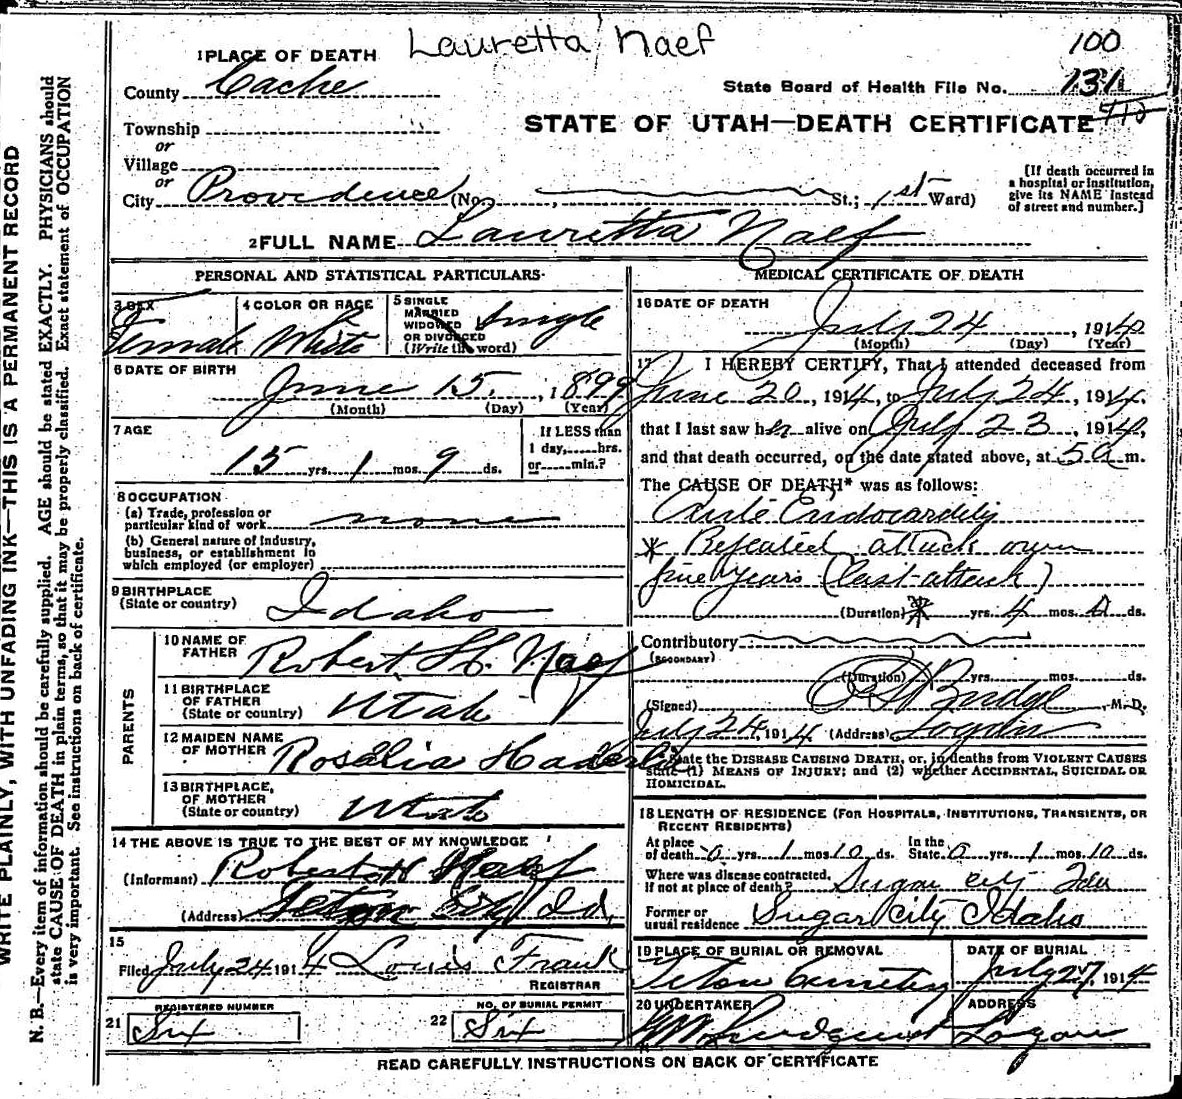 Lauretta Naef
100
1 PLACE OF DEATH
County Cache
State Board of Health File No. 131
Township
or
STATE OF UTAH—DEATH CERTIFICATE
Village
or
City Providence (No. , St.; 1st Ward)
[If death occurred in a hospital or institution, give its NAME instead of street and number.]
2 FULL NAME Lauretta Naef
WRITE PLAINLY, WITH UNFADING INK—THIS IS A PERMANENT RECORD
N. B.—Every item of information should be carefully supplied. AGE should be stated EXACTLY. PHYSICIANS should
state CAUSE OF DEATH in plain terms, so that it may be properly classified. Exact statement of OCCUPATION
is very important. See instructions on back of certificate.
PERSONAL AND STATISTICAL PARTICULARS
3 SEX
Female
4 COLOR OR RACE
White
5 SINGLE
MARRIED
WIDOWED
OR DIVORCED
(Write the word)
Single
6 DATE OF BIRTH
June 15, 1899
(Month) (Day) (Year)
7 AGE
15 yrs. 1 mos. 9 ds.
If LESS than
1 day, hrs.
or min.?
8 OCCUPATION
(a) Trade, profession or
particular kind of work none
(b) General nature of Industry,
business, or establishment in
which employed (or employer)
9 BIRTHPLACE
(State or country) Idaho
PARENTS
10 NAME OF
FATHER Robert H. Naef
11 BIRTHPLACE
OF FATHER
(State or country) Utah
12 MAIDEN NAME
OF MOTHER Rosalia Haderlie
13 BIRTHPLACE,
OF MOTHER
(State or country) Utah
14 THE ABOVE IS TRUE TO THE BEST OF MY KNOWLEDGE
(Informant) Robert H Naef
(Address) City Id.
15
Filed July 24 1914 Louis Frank
REGISTRAR
REGISTERED NUMBER
21 Six
NO. OF BURIAL PERMIT
22 Six
MEDICAL CERTIFICATE OF DEATH
16 DATE OF DEATH
July 24, 1914
(Month) (Day) (Year)
17 I HEREBY CERTIFY, That I attended deceased from
June 20, 1914, to July 24, 1914,
that I last saw her alive on July 23, 1914,
and that death occurred, on the date stated above, at 5 a m.
The CAUSE OF DEATH* was as follows:
Acute Endocarditis
* Repeated attack over
five years (last attack)
(Duration) * yrs. 4 mos. 0 ds.
Contributory
(SECONDARY)
(Duration) yrs. mos. ds.
(Signed) Budge, M. D.
July 24, 1914 (Address) Logan
State the DISEASE CAUSING DEATH, or, in deaths from VIOLENT CAUSES
state (1) MEANS OF INJURY; and (2) whether ACCIDENTAL, SUICIDAL OR
HOMICIDAL.
18 LENGTH OF RESIDENCE (FOR HOSPITALS, INSTITUTIONS, TRANSIENTS, OR
RECENT RESIDENTS)
At place of death 0 yrs. 1 mos 10 ds. In the State 0 yrs. 1 mos. 10 ds.
Where was disease contracted,
if not at place of death? Sugar City Ida
Former or
usual residence Sugar City Idaho
19 PLACE OF BURIAL OR REMOVAL
Teton Cemetery
DATE OF BURIAL
July 27, 1914
20 UNDERTAKER
Lundquist
ADDRESS
Logan
READ CAREFULLY INSTRUCTIONS ON BACK OF CERTIFICATE